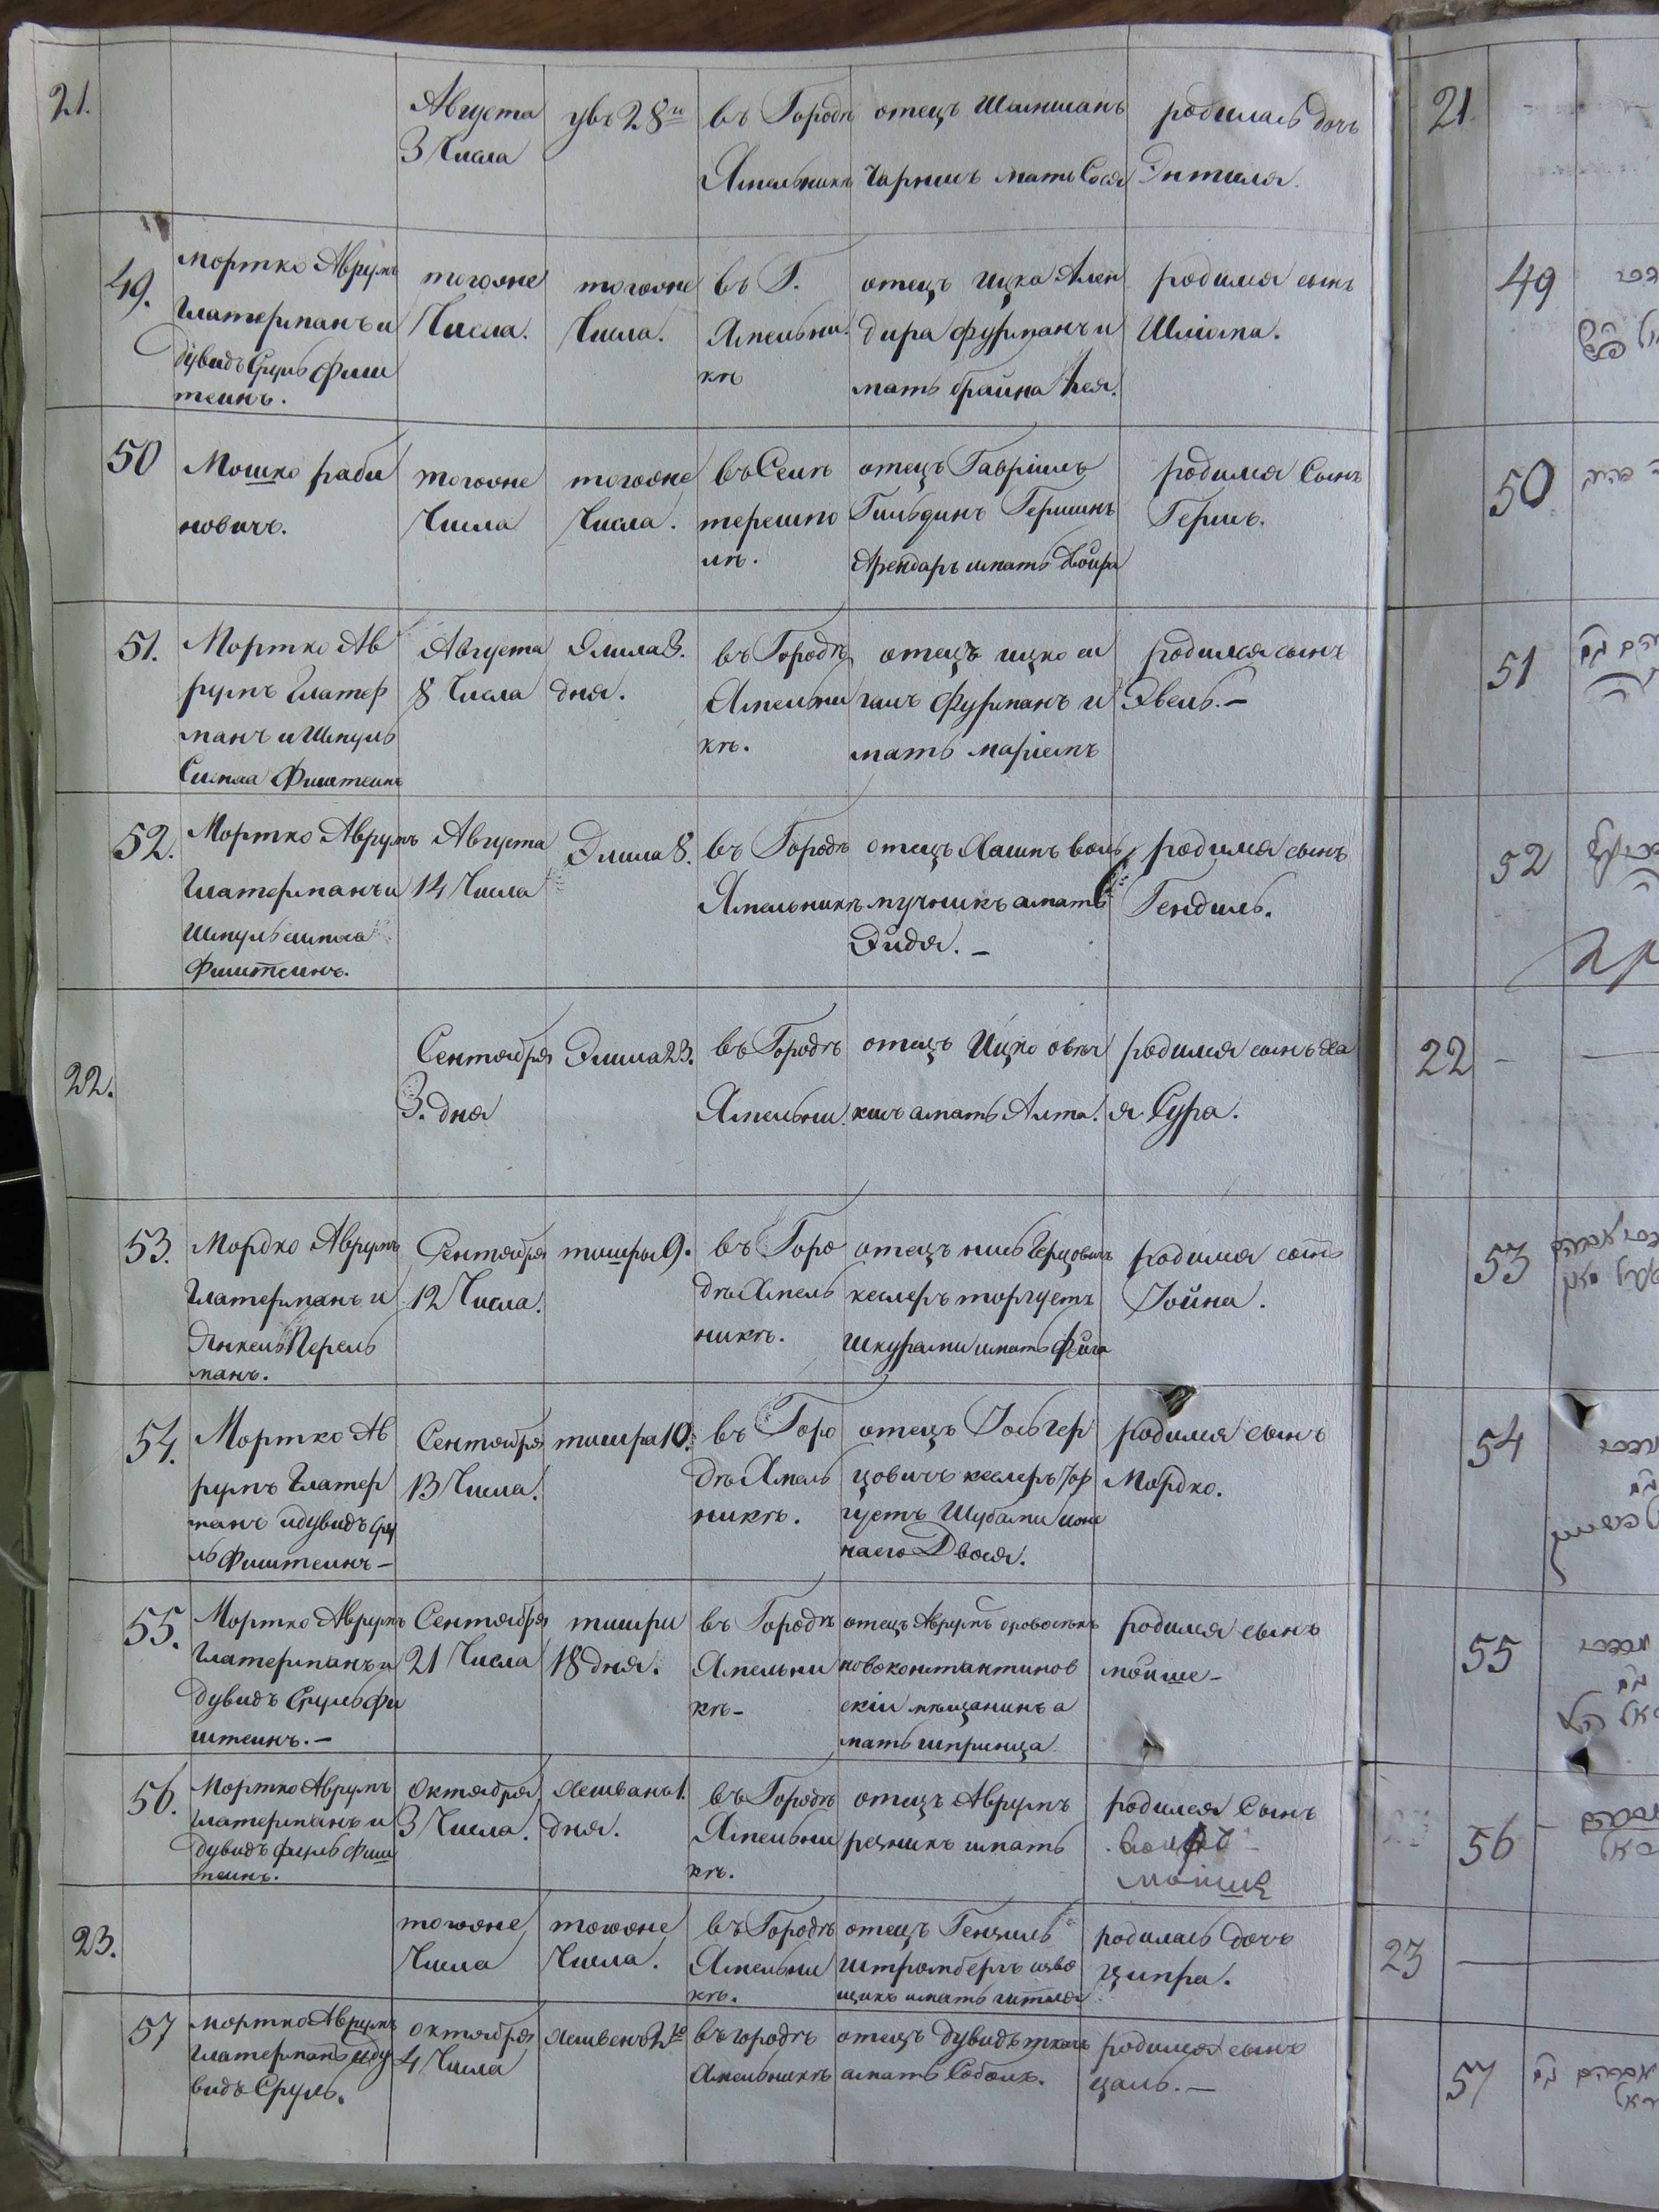 21.
Августа
3 Числа
увъ 28го
въ Городѣ
Хмельникѣ
отецъ
мать Сося
родилась дочь
Энтеля.
49.
Мортко Аврумъ
Глатерманъ и
дувидъ Сруль Фиш
теинъ.
тогоже
Числа.
тогоже
Числа.
въ Г.
Хмельни
кѣ
отецъ Ицка Ален
дира фурманъ и
мать брайна Лея.
родился сынъ
Шліома.
50
Мошко раби
новичъ.
тогоже
Числа
тогоже
Числа.
въ Селѣ
терешпо
лѣ.
отецъ Гавріиль
Гильдинъ Гершинъ
Арендарь имать двойра
родился Сынъ
Гершъ.
51.
Мортко Ав
румъ Глатер
манъ и Шмуль
Симха Фиштеинъ
Августа
8 Числа
Элила 3.
дня.
въ Городѣ
Хмельни
кѣ.
отецъ ицко
фурманъ и
мать маріемъ
родился сынъ
Эвель.-
52.
Мортко Аврумъ
Глатерманъ и
Шмуль симха
Фиштеинъ.
Августа
14 Числа
Элила 8.
въ Городѣ
Хмельникѣ
отецъ Хаимъ воль
мучникъ амать
Эйдя. -
родился сынъ
Гендиль.
22.
Сентября
3. дня
Элила 23.
въ Городѣ
Хмельни.
отецъ Ицко
амать Алта.
родился сынъ ха
я Сура.
53.
Мордко Аврумъ
Глатерманъ и
Янкель Перель
манъ.
Сентября
12 Числа.
тишры 9.
въ Горо
дѣ Хмель
никѣ.
отецъ Герцовичъ
кеслеръ торгуетъ
Шкурами имать фейга
родился сынъ
Іойна.
54.
Мортко Ав
румъ Глатер
манъ идувидъ Сру
ль Фиштеинъ -
Сентября
13 Числа.
тишра 10.
въ Горо
дѣ Хмель
никѣ.
отецъ Іось гер
цовичъ кеслеръ тор
гуетъ Шубами ижи
наего Двося.
родился сынъ
Мордко.
55.
Мортко Аврумъ
Глатерманъ и
дувидъ Сруль Фи
штеинъ. -
Сентября
21 Числа
тишри
18 дня.
въ Городѣ
Хмельни
кѣ -
отецъ Аврумъ дровосѣкъ
новоконстантинов
скіи мѣщанинъ а
мать шпринца
родился сынъ
мойше -
56.
Мортко Аврумъ
Глатерманъ и
дувидъ сруль Фиш
теинъ.
Октября
3 Числа.
Хешвана 1.
дня.
въ Городѣ
Хмельни
кѣ.
отецъ Аврумъ
резникъ имать
родился Сынъ
мойше
23.
тогоже
Числа
тогоже
Числа.
въ Городѣ
Хмельни
кѣ.
отецъ Гензиль
Штромбергъ изво
щикъ имать гитля
родилась дочь
ципра.
57
мортко Аврумъ
Глатерманъ иду
видъ Сруль.
Октября
4 Числа
Хешвенъ 2го
въ городѣ
Хмельникѣ
отецъ дувидъ ткачъ
амать Соболъ.
родился сынъ
цаль. -
21
49
50
51
52
22
53
54
55
56
23
57